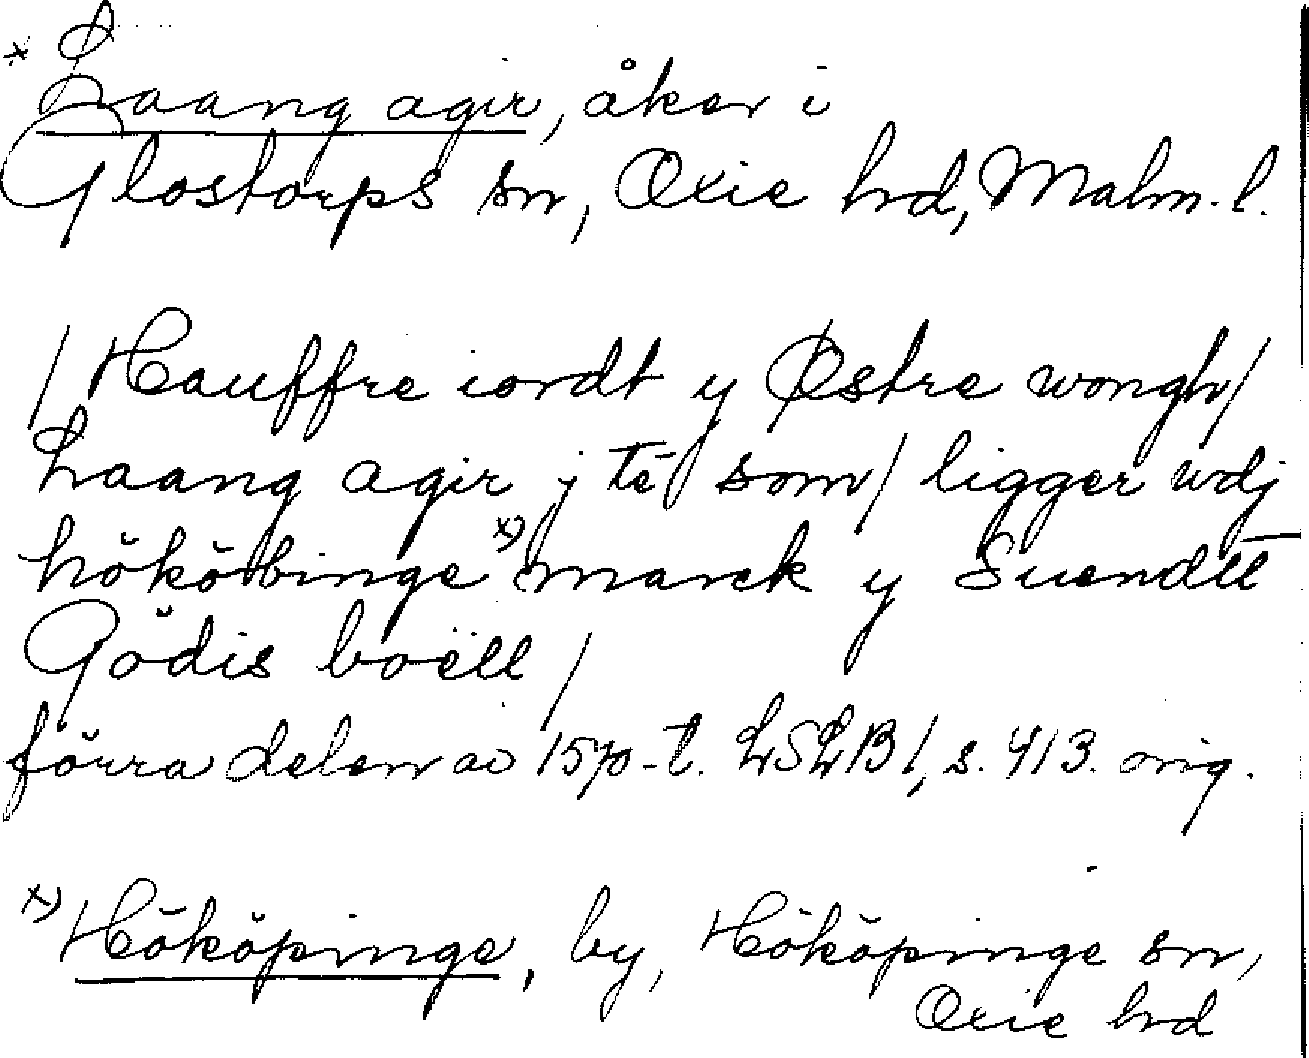 * Laang agir, åker i
Glostorps sn, Oxie hrd, Malm. l.
/ Hauffre iordt y Østre wongh/
Laang agir j té som / ligger wdj
hököbinge x) marck y Suendtt
Gödis boëll /
förra delen av 1570-t. LSLB 1, s. 413. orig.
x) Hököpinge, by, Hököpinge sn,
Oxie hrd